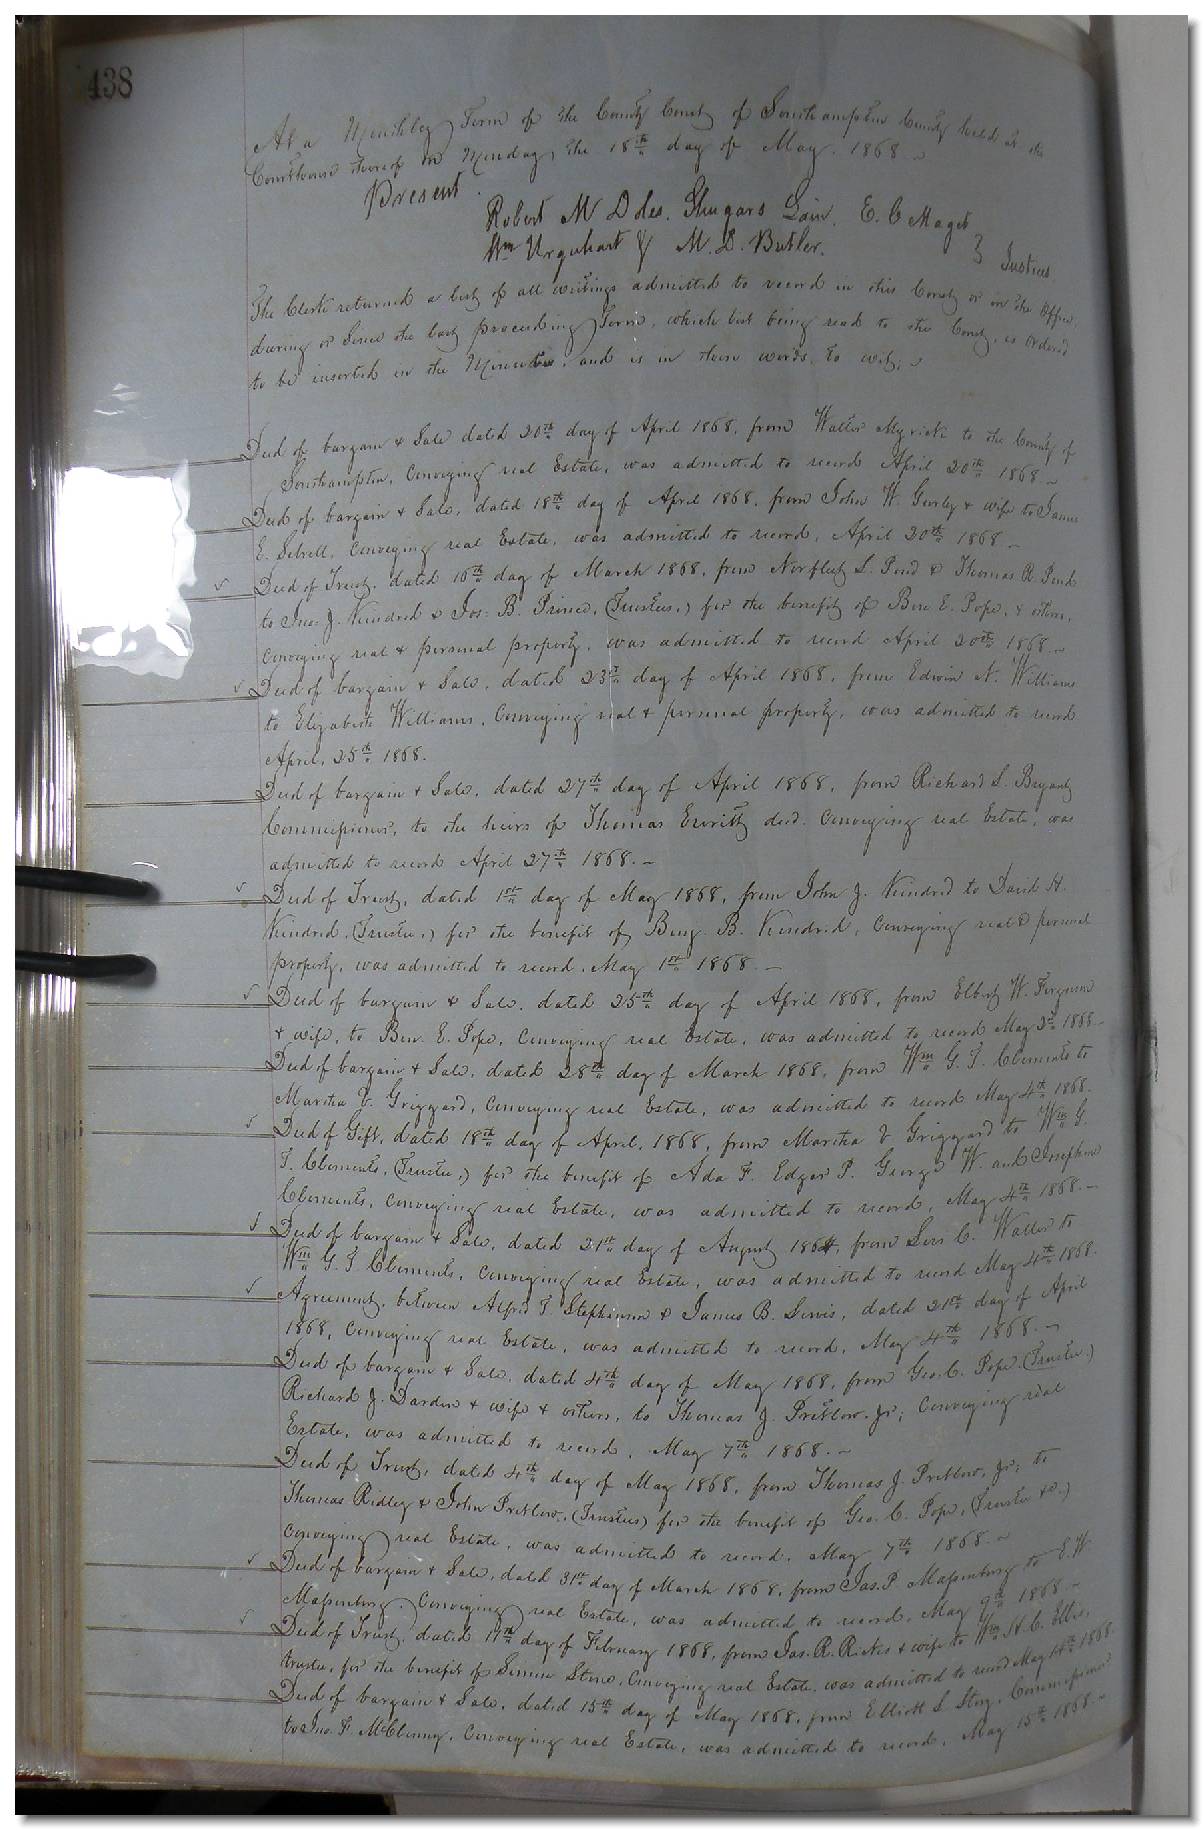 438
At a Monthly Term of the County Court of Southampton County held at the
Courthouse thereof on Monday, the 18th day of May. 1868
Present.
Robert M Doles. Shugars Lain. E. C Maget
Wm Urquhart & M. D. Butler. } Justices
The Clerk returned a list of all writings admitted to record in this Court or in the Office
during or Since the last proceeding Term, which list being read to the Court, is ordered
to be inserted in the Minutes, and is in these words, to wit;
Deed of bargain & Sale dated 20th day of April 1868, from Walter Myrick to the County of
Southampton, Conveying real Estate, was admitted to record April 20th 1868.
Deed of bargain & Sale, dated 18th day of April 1868, from John W. Gurley & wife to James
E. Sebrell, Conveying real Estate, was admitted to record, April 20th 1868
Deed of Trust, dated 10th day of March 1868, from Norfleet S. Pond & Thomas R. Pond
to Jno. J. Kindred & Jos: B. Prince, (Trustees,) for the benefit of Ben. E. Pope, & others,
Conveying real & personal property, was admitted to record April 20th 1868.
Deed of bargain & Sale, dated 23d day of April 1868, from Edwin N. Williams
to Elizabeth Williams, Conveying real & personal property, was admitted to record
April, 25th 1868.
Deed of bargain & Sale, dated 27th day of April 1868, from Richard S. Bryant
Commissioner, to the heirs of Thomas Everitt decd. Conveying real Estate, was
admitted to record April 27th 1868.
Deed of Trust, dated 1st day of May 1868, from John J. Kindred to David H.
Kindred, (Trustee,) for the benefit of Benj. B. Kindred, Conveying real & personal
property, was admitted to record, May 1st 1868.
Deed of bargain & Sale, dated 25th day of April 1868, from Elbert W. Ferguson
& wife, to Ben. E. Pope, Conveying real Estate, was admitted to record May 2d 1868.
Deed of bargain & Sale, dated 28th day of March 1868, from Wm G. T. Clements to
Martha V. Griggard, Conveying real Estate, was admitted to record May 4th 1868.
Deed of Gift, dated 18th day of April, 1868, from Martha V Griggard to Wm G.
T. Clements, (Trustee,) for the benefit of Ada F. Edgar P. George W. and Josephine
Clements, Conveying real Estate, was admitted to record, May 4th 1868.
Deed of bargain & Sale, dated 21st day of August 1864, from Levi C. Waller to
Wm G. T Clements, Conveying real Estate, was admitted to record May 4th 1868.
Agreement, between Alfred T Stephenson & James B. Lewis, dated 21st day of April
1868, Conveying real Estate, was admitted to record, May 4th 1868.
Deed of bargain & Sale, dated 4th day of May 1868, from Geo. C. Pope (Trustee.)
Richard J. Darden & wife & others, to Thomas J. Pretlow, Jr; Conveying real
Estate, was admitted to record, May 7th 1868.
Deed of Trust, dated 4th day of May 1868, from Thomas J. Pretlow, Jr; to
Thomas Ridley & John Pretlow, (Trustees) for the benefit of Geo. C. Pope, (Trustee &c.)
Conveying real Estate, was admitted to record, May 7th 1868.
Deed of bargain & Sale, dated 31st day of March 1868, from Jas. P. Massenburg to E. W
Massenburg. Conveying real Estate, was admitted to record, May 9th 1868.
Deed of Trust, dated 17th day of February 1868, from Jas. R. Ricks & wife to Wm H. C. Ellis,
trustee, for the benefit of Simon Stone, Conveying real Estate, was admitted to record May 14th 1868.
Deed of bargain & Sale, dated 15th day of May 1868, from Elliott L Story, Commissioner
to Jno. F. McClenny, Conveying real Estate, was admitted to record, May 15th 1868.